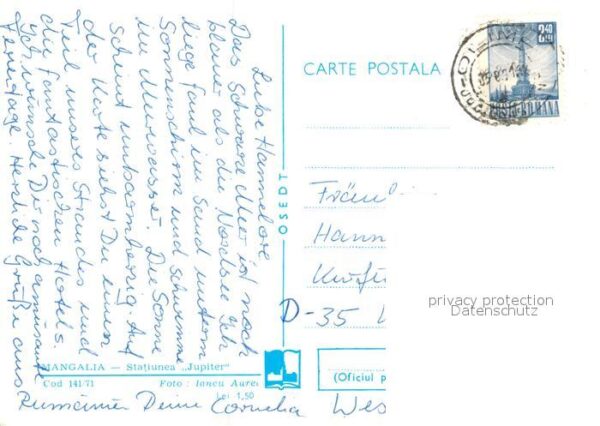 Liebe Hannelore
Das Schwarze Meer ist noch
blauer als die Nordsee. Ich
liege faul im Sand unterm
Sonnenschirm und schwimme
im Meerwasser. Die Sonne
scheint unbarmherzig. Auf
der Karte siehst Du einen
Teil unseres Strandes und
die fantastischen Hotels.
Ich wünsche Dir noch amüsante
Ferientage. Herzliche Grüße aus
Rumänien Deine Cornelia
MANGALIA — Stațiunea „Jupiter"
Cod 141-71 Foto: Iancu Aurel
Lei 1,50
OSEDT
CARTE POSTALA
2,40
LEI
POSTA ROMANA
Fräul
Hann
Kurfü
D-35
(Oficiul p
Wes
privacy protection
Datenschutz